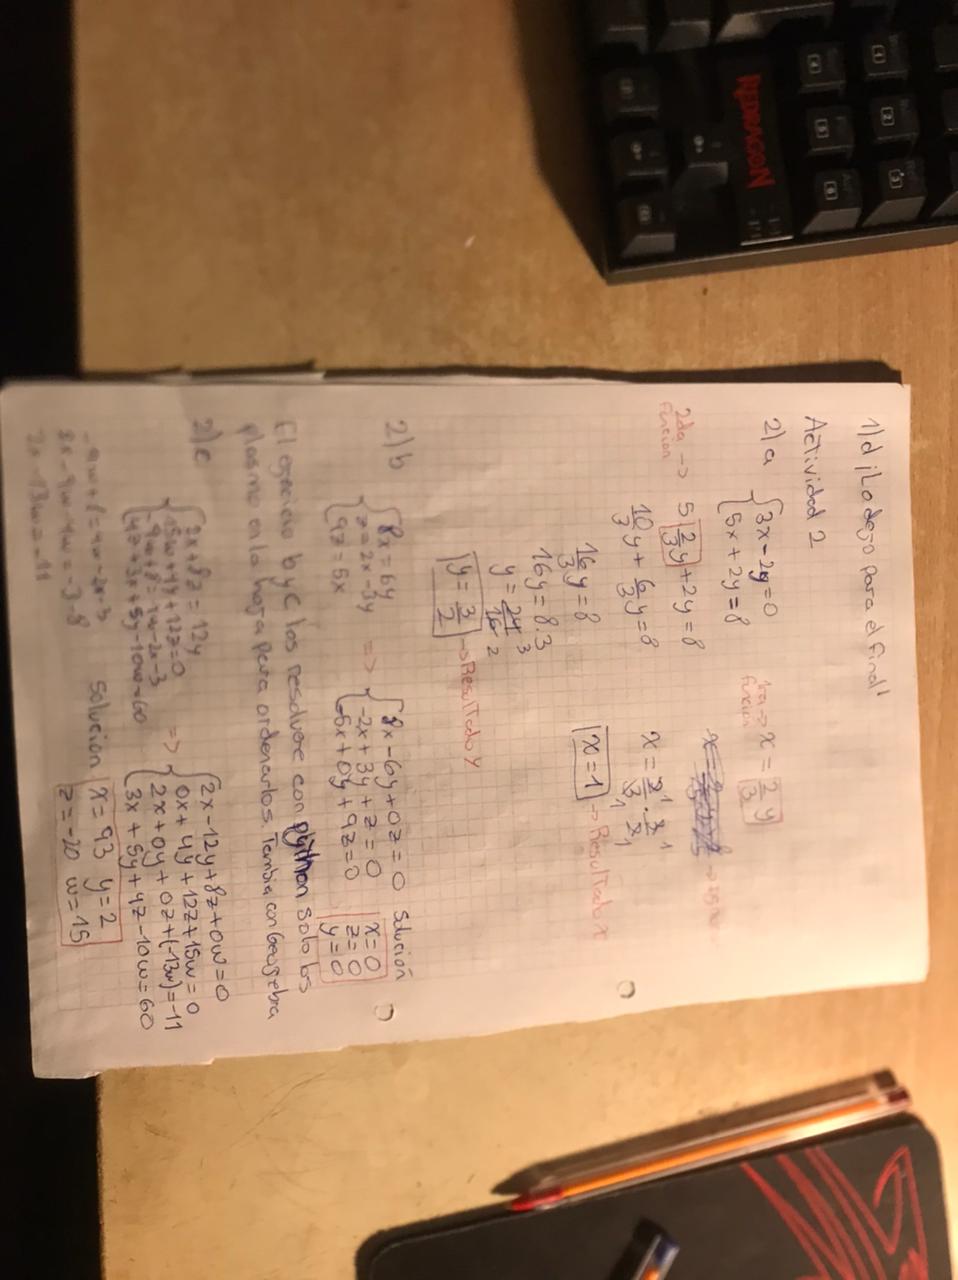 REDRAGON
1)d ¡Lo dejo para el final!
Actividad 2
2)a
3x-2y=0
5x+2y=8
1ra → x = 2/3 y
función
2da → 5 2/3y+2y=8
función
10/3y + 6/3y=8
16/3y=8
16y=8.3
y= 24/16 3/2
y= 3/2 → Resultado Y
x= 2/3 1/1 . 3/2 1/1
x=1 → Resultado X
2)b
8x=6y
z=2x-3y
9z=5x
=>
8x-6y+0z=0
-2x+3y+z=0
-5x+0y+9z=0
Solución
x=0
z=0
y=0
El ejercicio b y C los resolvere con python solo los
plasmo en la hoja para ordenarlos. Tambia con Geogebra
2)c
2x+8z=12y
15w+4y+12z=0
-9w+8=4w-2x-3
4z+3x+5y-10w=60
=>
2x-12y+8z+0w=0
0x+4y+12z+15w=0
2x+0y+0z+(-13w)=-11
3x+5y+4z-10w=60
-9w+8=4w-2x-3
2x-9w-4w=-3-8
2x-13w=-11
Solucion
x=93 y=2
z=-20 w=15